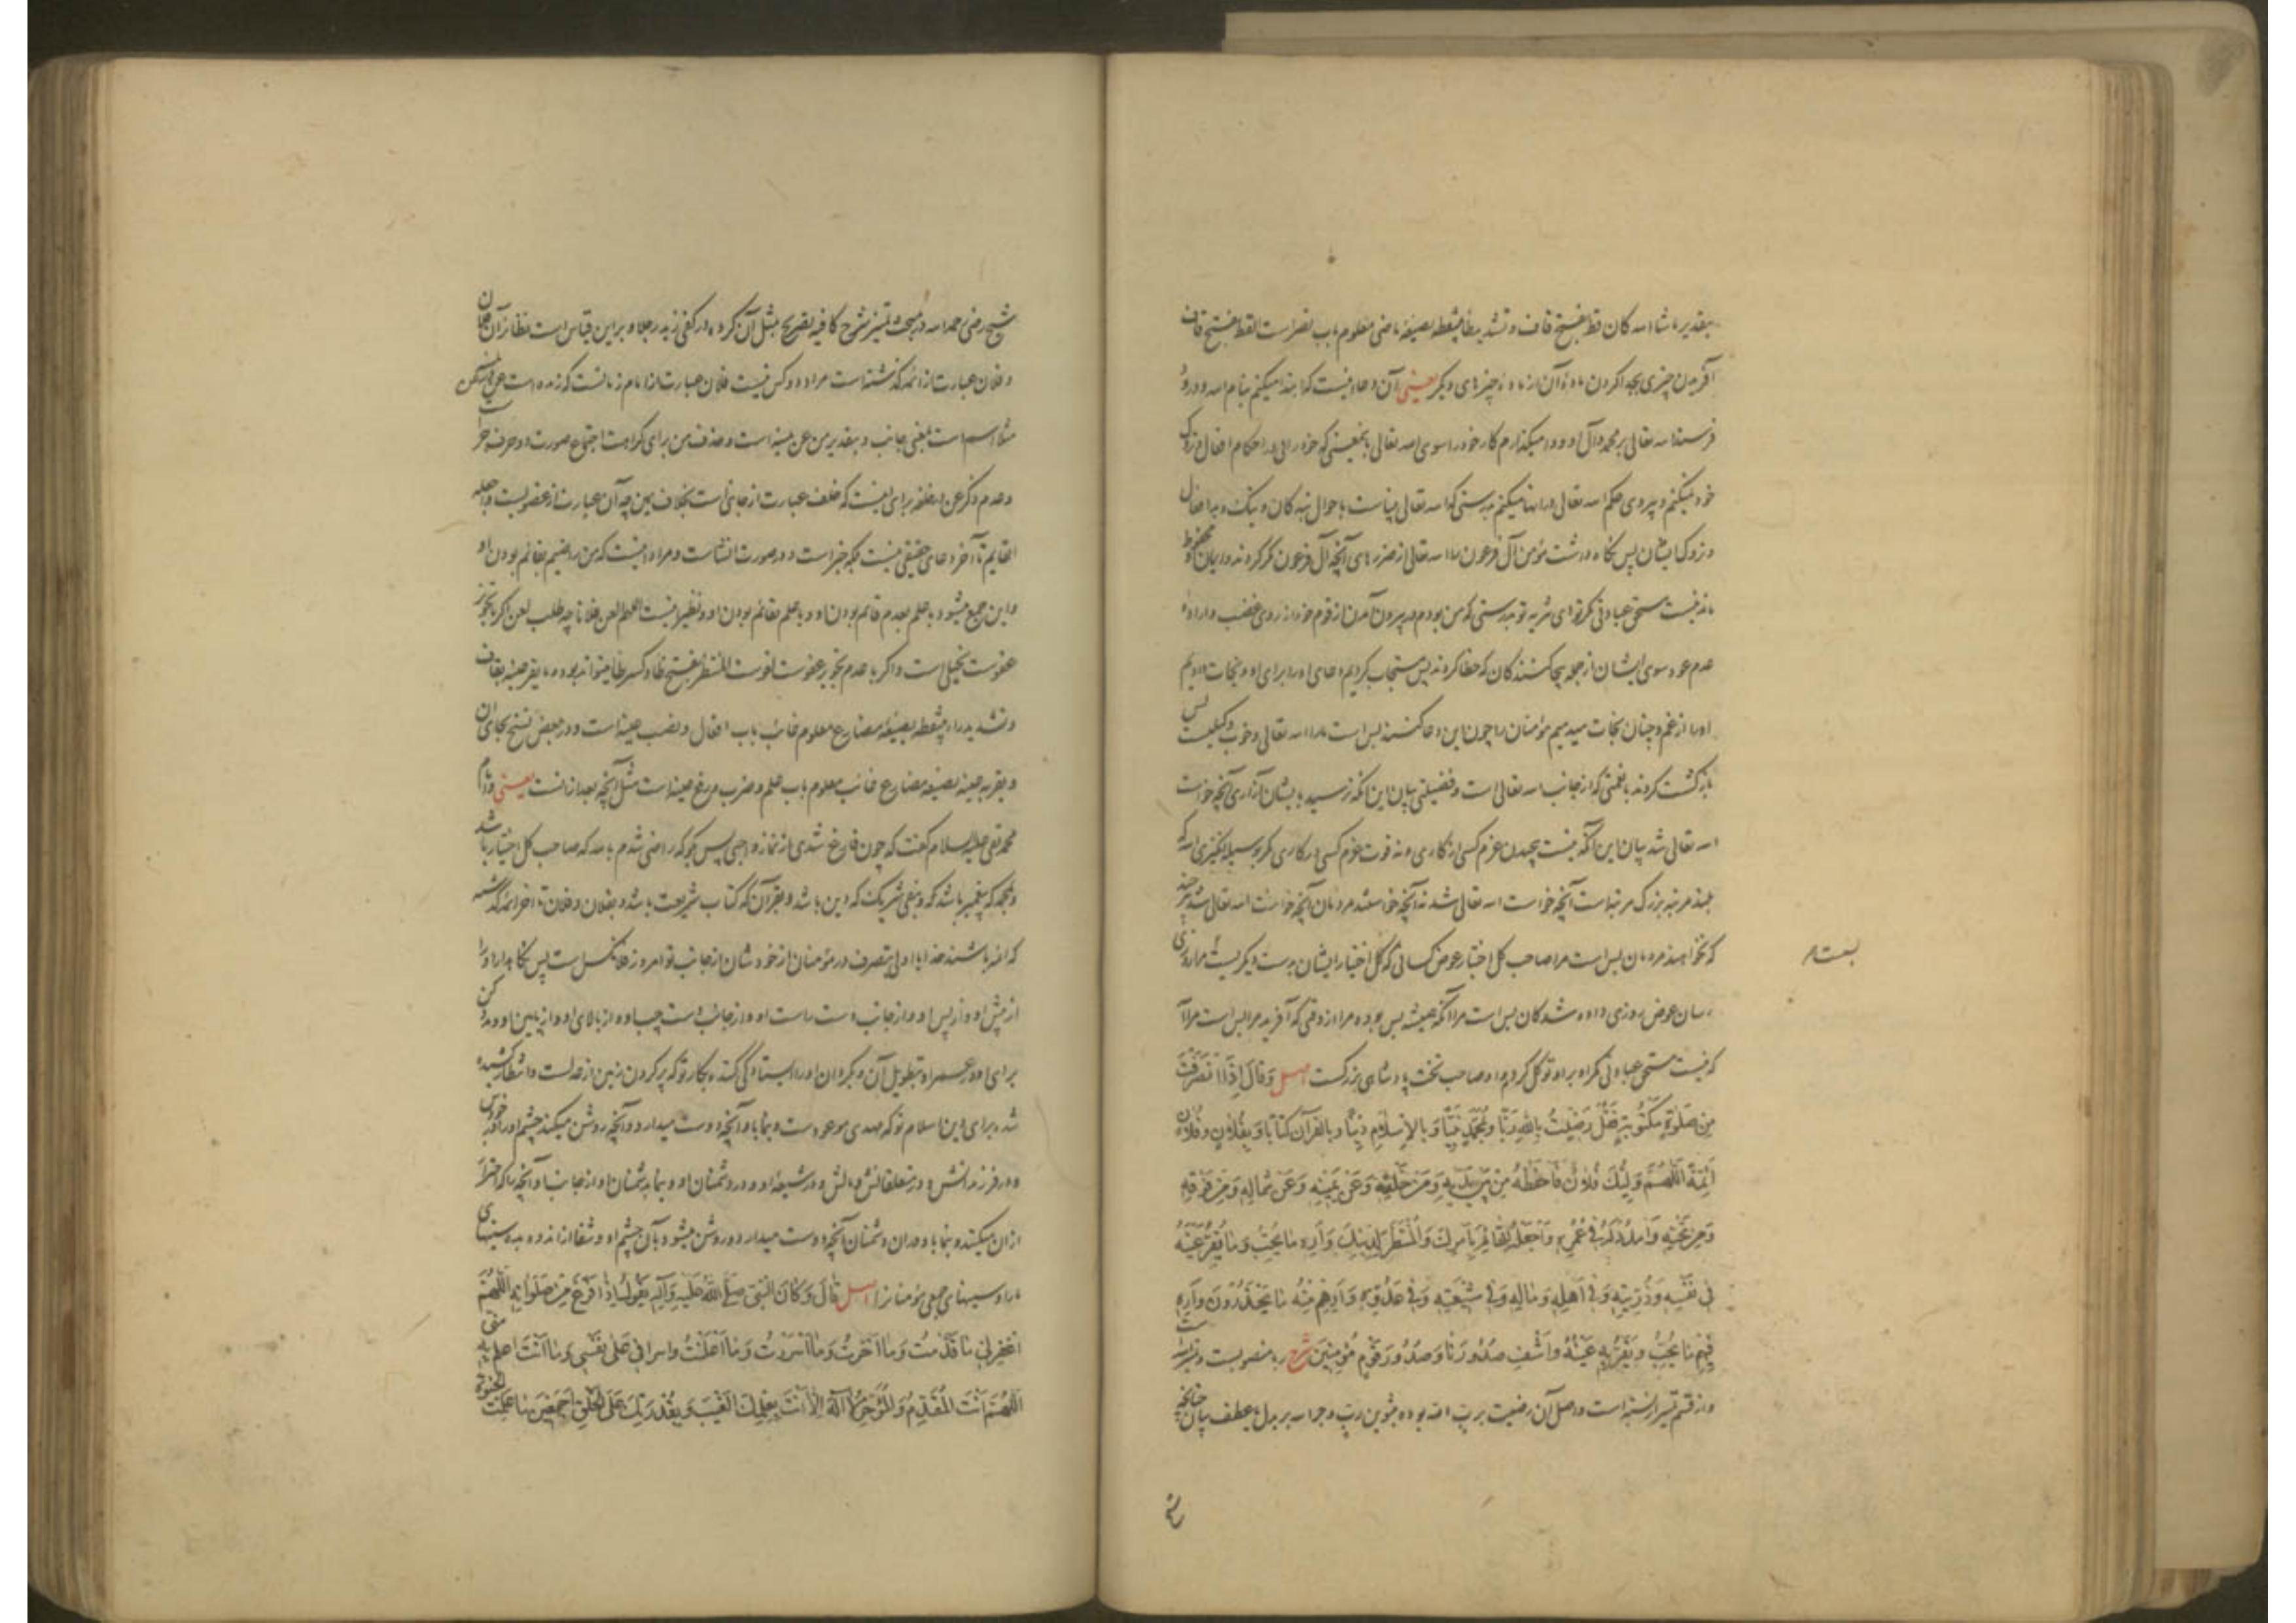 بتقدیر ما شاء الله کان قط بفتح قاف و تشدید طاء بی‌نقطه بصیغهٔ ماضی معلوم باب نصر است القط بفتح قاف
آفریدن چیزی بجدا کردن مادهٔ آن از مادهٔ چیزهای دیگر یعنی آن دعا اینست که ابتدا میکنم بنام الله و درود
فرستد الله تعالی بر محمد و آل او و وا میگذارم کار خود را سوی الله تعالی باینمعنی که خودرایی در احکام افعال و تروک
خود نمیکنم و پیروی حکم الله تعالی در آنها میکنم بدرستی که الله تعالی بیناست باحوال بندگان و نیک و بد افعال
و تروک ایشان پس نگاه داشت مؤمن آل فرعون را الله تعالی از ضررهای آنچه آل فرعون مکر کردند در ایمان محفوظ
ماند نیست مستحق عبادتی مگر تو ای منزه تو بدرستی که من بودم در بیرون آمدن از قوم خود از روی غضب و ارادهٔ
عدم عود سوی ایشان از جمله بیجا کنندگان که خطا کردند پس مستجاب کردیم دعای او را برای او و نجات دادیم
او را از غم و چنان نجات میدهیم مؤمنان را چون این دعا کنند بس است ما را الله تعالی و خوب وکیلیست پس
بازگشت کردند بانعمتی که از جانب الله تعالی است و فضیلتی بیان این آنکه نرسید بایشان آزاری آنچه خواست
الله تعالی شد بیان این آنکه نیست پیچیدن عزم کسی از کاری و نه قوت عزم کسی در کاری مگر بوسیلهٔ انگیزی الله که
بلند مرتبه بزرگ مرتبه است آنچه خواست الله تعالی شد نه آنچه خواستند مردمان آنچه خواست الله تعالی شد هر چند
که نخواهند مردمان بس است مرا صاحب کل اختیار عوض کسانی که کل اختیار ایشان بدست دیگریست بس است مرا روزی
بعست مر
رسان عوض روزی داده شدگان بس است مرا آنکه همیشه بس بوده مرا از وقتی که آفرید مرا بس است مرا آ
که نیست مستحق عبادتی مگر او بر او توکل کردم و او صاحب تخت پادشاهی بزرگست اصل وَقالَ اِذَا انْصَرَفْتَ
مِن صَلٰوةٍ مَکْتُوبَةٍ فَقُلْ رَضیتُ بِاللّٰهِ رَبًّا وَ بِمُحَمَّدٍ نَبِیًّا وَ بِالاِسْلامِ دینًا وَ بِالْقُرآنِ کِتابًا وَ بِفُلانٍ وَ فُلانٍ
اَئِمَّةً اَللّٰهُمَّ وَلِیُّکَ فُلانٌ فَاحْفَظْهُ مِن بَیْنِ یَدَیْهِ وَمِنْ خَلْفِهِ وَعَنْ یَمینِهِ وَعَنْ شِمالِهِ وَمِنْ فَوْقِهِ
وَمِنْ تَحْتِهِ وَامْدُدْ لَهُ فی عُمْرِهِ وَاجْعَلْهُ القائِمَ بِاَمْرِکَ وَالْمُنْتَظَرَ لِدینِکَ وَاَرِهِ ما یُحِبُّ وَما تَقَرُّ عَیْنُهُ
فی نَفْسِهِ وَ ذُرِّیَّتِهِ وَفی اَهْلِهِ وَمالِهِ وَفی شیعَتِهِ وَفی عَدُوِّهِ وَاَرِهِمْ مِنْهُ ما یَحْذَرُونَ وَاَرِهِ
فیهِمْ ما یُحِبُّ وَ تَقَرُّ بِهِ عَیْنُهُ وَاشْفِ صُدُورَنا وَصُدُورَ قَوْمٍ مُؤْمِنینَ شرح ربّا منصوبست بتمییز
و از قسم تمییز نسبة است و اصل آن رضیت بربّ الله بوده بتنوین ربّ و جر الله بر بدل یا عطف بیان چنانچه
شیخ
شیخ رضی رحمه الله در مبحث تمییز شرح کافیه تصریح بمثل آن کرده در کفی زید رجلا و بر این قیاس است نظائر آن فلان
و فلان عبارت از ائمهٔ گذشته است مراد دو کس نیست فلان عبارت از امام زمانست که زنده است عن در عن یمینه
مثلا اسم است بمعنی جانب و بتقدیر من عن یمینه است و حذف من برای کراهت اجتماع صورت دو حرف جر است
و عدم ذکر عن در خلفه برای اینست که خلف عبارت از جانبی است بخلاف یمین چه آن عبارت از عضویست واجعله
القایم تا آخر دعای حقیقی نیست بلکه خبر است در صورت انشاست و مراد اینست که من راضیم بقائم بودن او
و این جمع میشود با علم بعدم قائم بودن او و با علم بقائم بودن او و نظیر اینست اللهم العن فلانا چه طلب لعن اگر با تجویز
عفوست بخیلی است و اگر با عدم تجویز عفوست لغوست المنتظر بفتح ظا و کسر ظا میتواند بود و ما یقر عینه بقاف
و تشدید راء بی‌نقطه بصیغهٔ مضارع معلوم غائب باب افعال و نصب عینه است و در بعض نسخ بجای آن
و تقر به عینه بصیغهٔ مضارع غائب معلوم باب علم و ضرب و رفع عینه است مثل آنچه بعد از آنست یعنی و امام
محمد تقی علیه السلام گفت که چون فارغ شدی از نماز واجبی پس بگو که راضی شدم بالله که صاحب کل اختیار باشد
و بمحمد که پیغمبر باشد و بنفی شریک که دین باشد و بقرآن که کتاب شریعت باشد و بفلان و فلان تا آخر ائمهٔ گذشته
که ائمه باشند خدایا اولی بتصرف در مؤمنان از خودشان از جانب تو امروز فلان کس است پس نگاهدار او را
از پیش او و از پس او و از جانب دست راست او و از جانب دست چپ او و از بالای او و از پایین او و مدد کن
برای او در عمر او بتطویل آن و بگردان او را ایستادگی کننده بکار تو که پر کردن زمین از عدلست و انتظار کشیده
شده برای دین اسلام تو که مهدی موعودست و بنما باو آنچه دوست میدارد و آنچه روشن میکند چشم او را در خودش
و در فرزندانش و در متعلقانش و مالش و در شیعهٔ او و در دشمنان او و بنما بدشمنان او از جانب او آنچه را که احتراز
ازان میکنند و بنما باو در آن دشمنان آنچه دوست میدارد و روشن میشود بآن چشم او و شفا از اندوه بده سینهای
ما را و سینهای جمعی مؤمنانرا اصل قالَ وَکانَ النَّبِیُّ صَلَّی اللّٰهُ عَلَیْهِ وَآلِهِ یَقُولُ اِذا فَرَغَ مِنْ صَلوٰتِهِ اَللّٰهُمَّ
اغْفِرْلی ما قَدَّمْتُ وَما اَخَّرْتُ وَما اَسْرَرْتُ وَما اَعْلَنْتُ وَاِسْرافی عَلٰی نَفْسی وَما اَنْتَ اَعْلَمُ بِهِ مِنّی
اَللّٰهُمَّ اَنْتَ الْمُقَدِّمُ وَالْمُؤَخِّرُ لا اِلٰهَ اِلّا اَنْتَ بِعِلْمِکَ الْغَیْبَ وَبِقُدْرَتِکَ عَلَی الْخَلْقِ اَجْمَعینَ ما عَلِمْتَ الْحَیٰوةَ